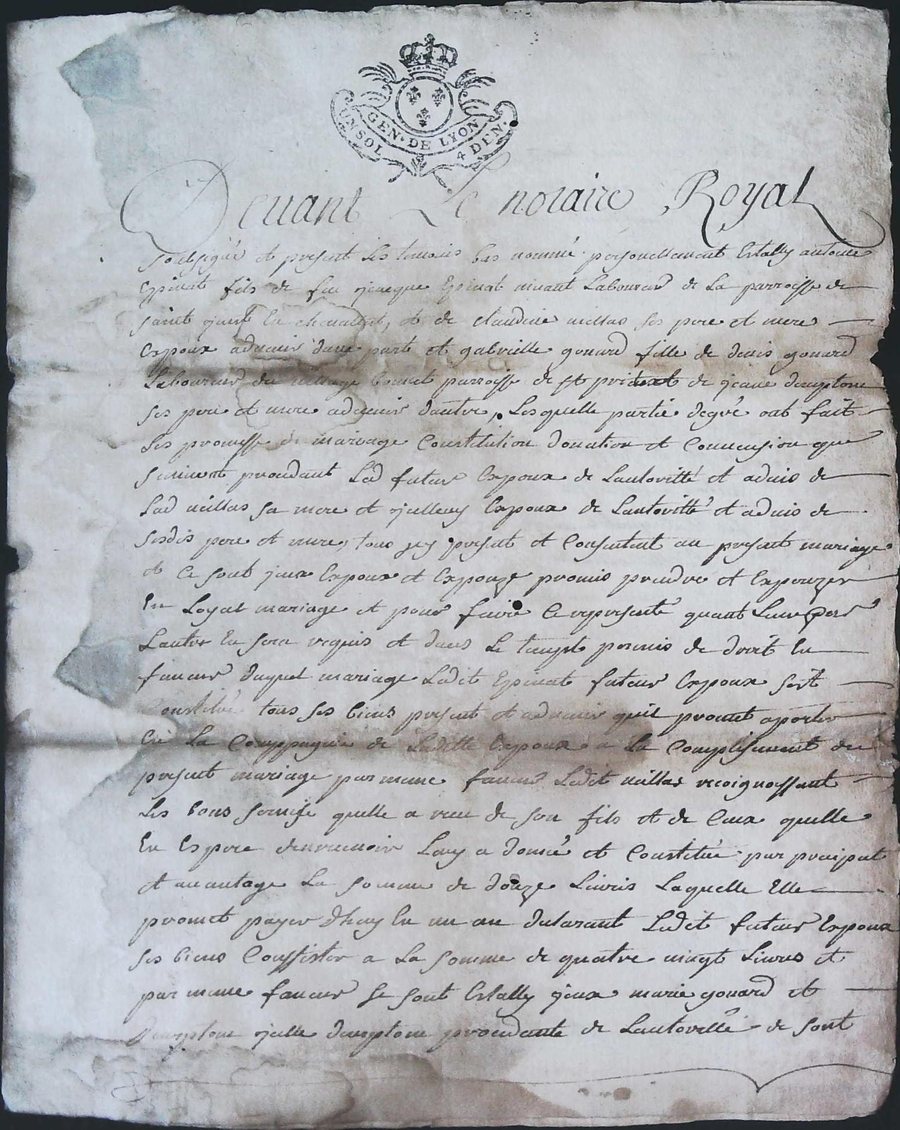 GEN. DE LYON
UN SOL 4 DEN.
Devant Le notaire Royal
soussigné et present les temoins bas nommé personellement Estably antoine
Epinat fils de feu jacque Epinat vivant Laboureur de La parroisse de
saint just En chevalet, et de claudine millas ses pere et mere
Expoux advenir dune part et gabrielle gouard fille de denis gouard
Laboureur du village parroisse de st prient et de jeane damptone
ses pere et mere advenir dautre, Lesquelle partie degré ont fait
Les promesse de mariage Constitution donation et Convension que
suivent procedant Led futeur Expoux de Lautovitté et advis de
Lad millas sa mere et Expouze de Lautovitté et advis de
sesdis pere et mere, tous jcy present et Consentent au present mariage
et ce sont jeux Expoux et Expouze promis prendre et Expouzer
En Loyal mariage et pour faire ce representé quant Lun par
Lautre En sera requis et dans Le temps permis de droit En
faveur duquel mariage Ledit Epinat futeur Expoux sest
Constitué tous ses biens present et advenir quil promet aporter
En La Comppagnie de Laditte Expouze a La Complisement du
present mariage par mesme faveur Ladit millas recoignossant
Les bons servise quelle a receu de son fils et de Ceux quelle
En Espere Luy a donné et Constitué par preciput
et avantage La somme de douze Livres Laquelle Elle
promet payer dhuy En un an declarant Ledit futeur Expoux
ses biens Consister a La somme de quatre vingt Livres et
par mesme faveur se sont Estably jeux marie gouard et
damptone jcelle damptone procedante de Lautovitté de sont